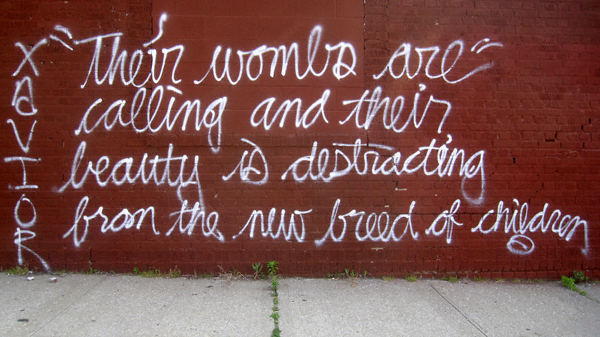 XAVIOR
"Their wombs are"
calling and their
beauty is distracting
from the new breed of children